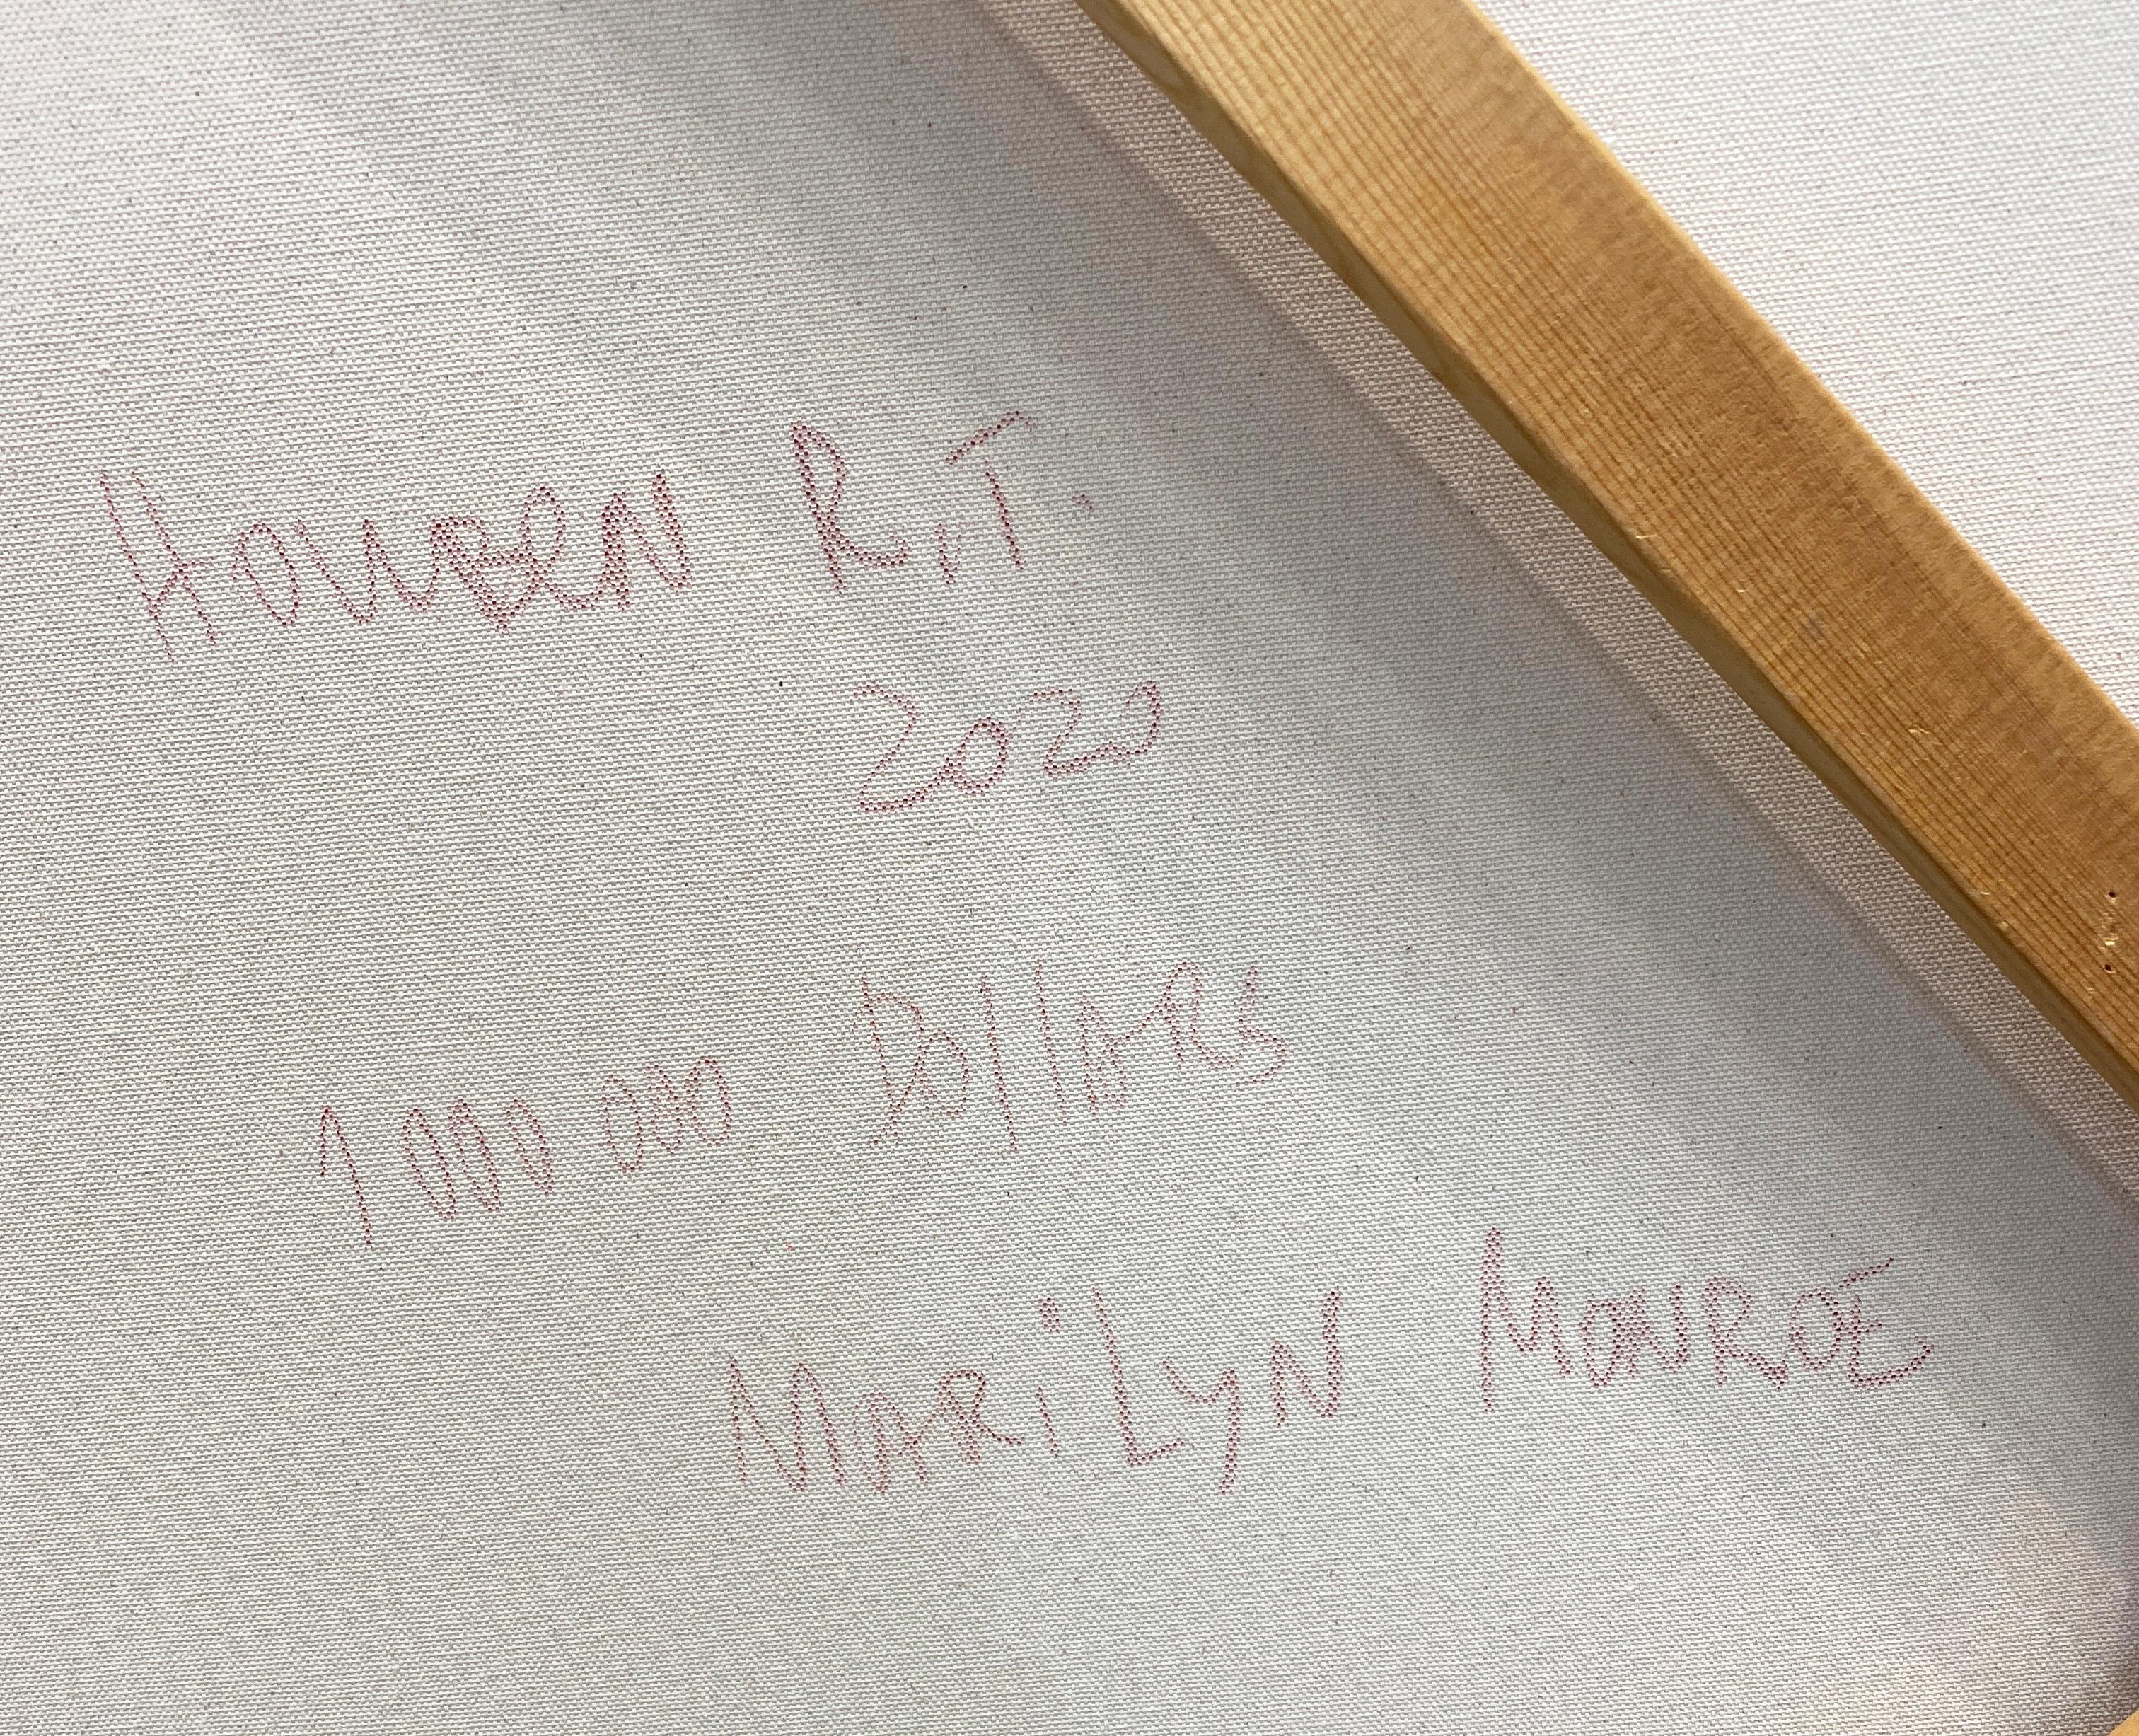 Houben R.T.
2020
1 000 000 Dollars
MARiLyN MONROE